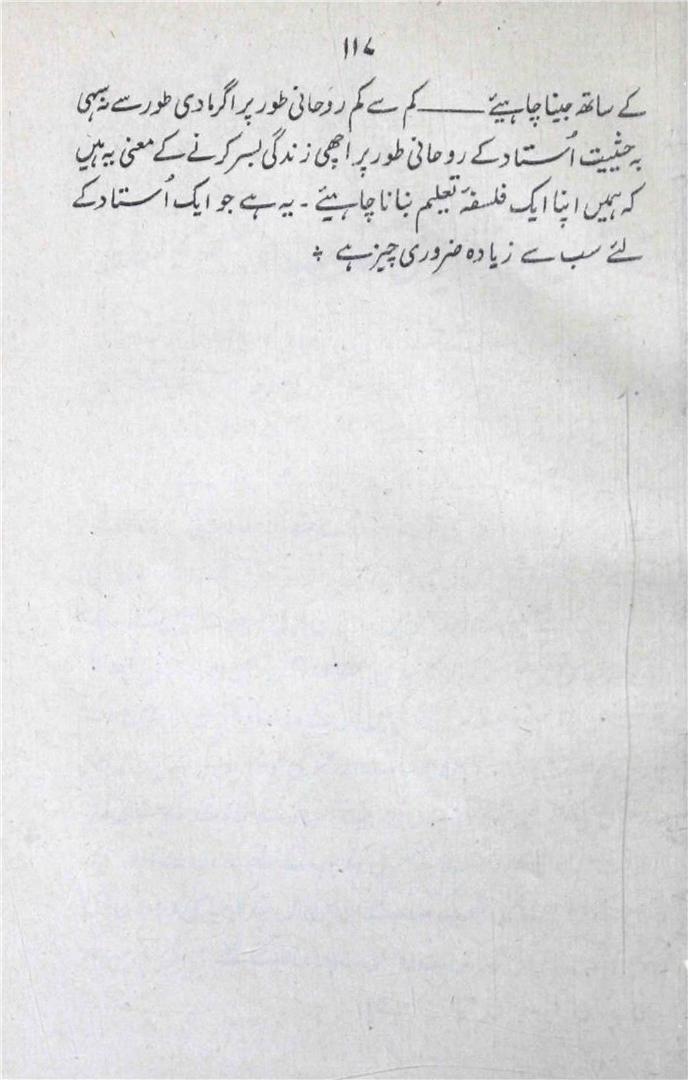 ۱۱۷
کے ساتھ جینا چاہیئے ـــــ کم سے کم روحانی طور پر اگر مادی طور سے نہ سہی
بہ حثییت اُستاد کے روحانی طور پر اچھی زندگی بسر کرنے کے معنی یہ ہیں
کہ ہمیں اپنا ایک فلسفۂ تعلیم بنانا چاہیئے ۔ یہ ہے جو ایک اُستاد کے
لئے سب سے زیادہ ضروری چیز ہے ؞